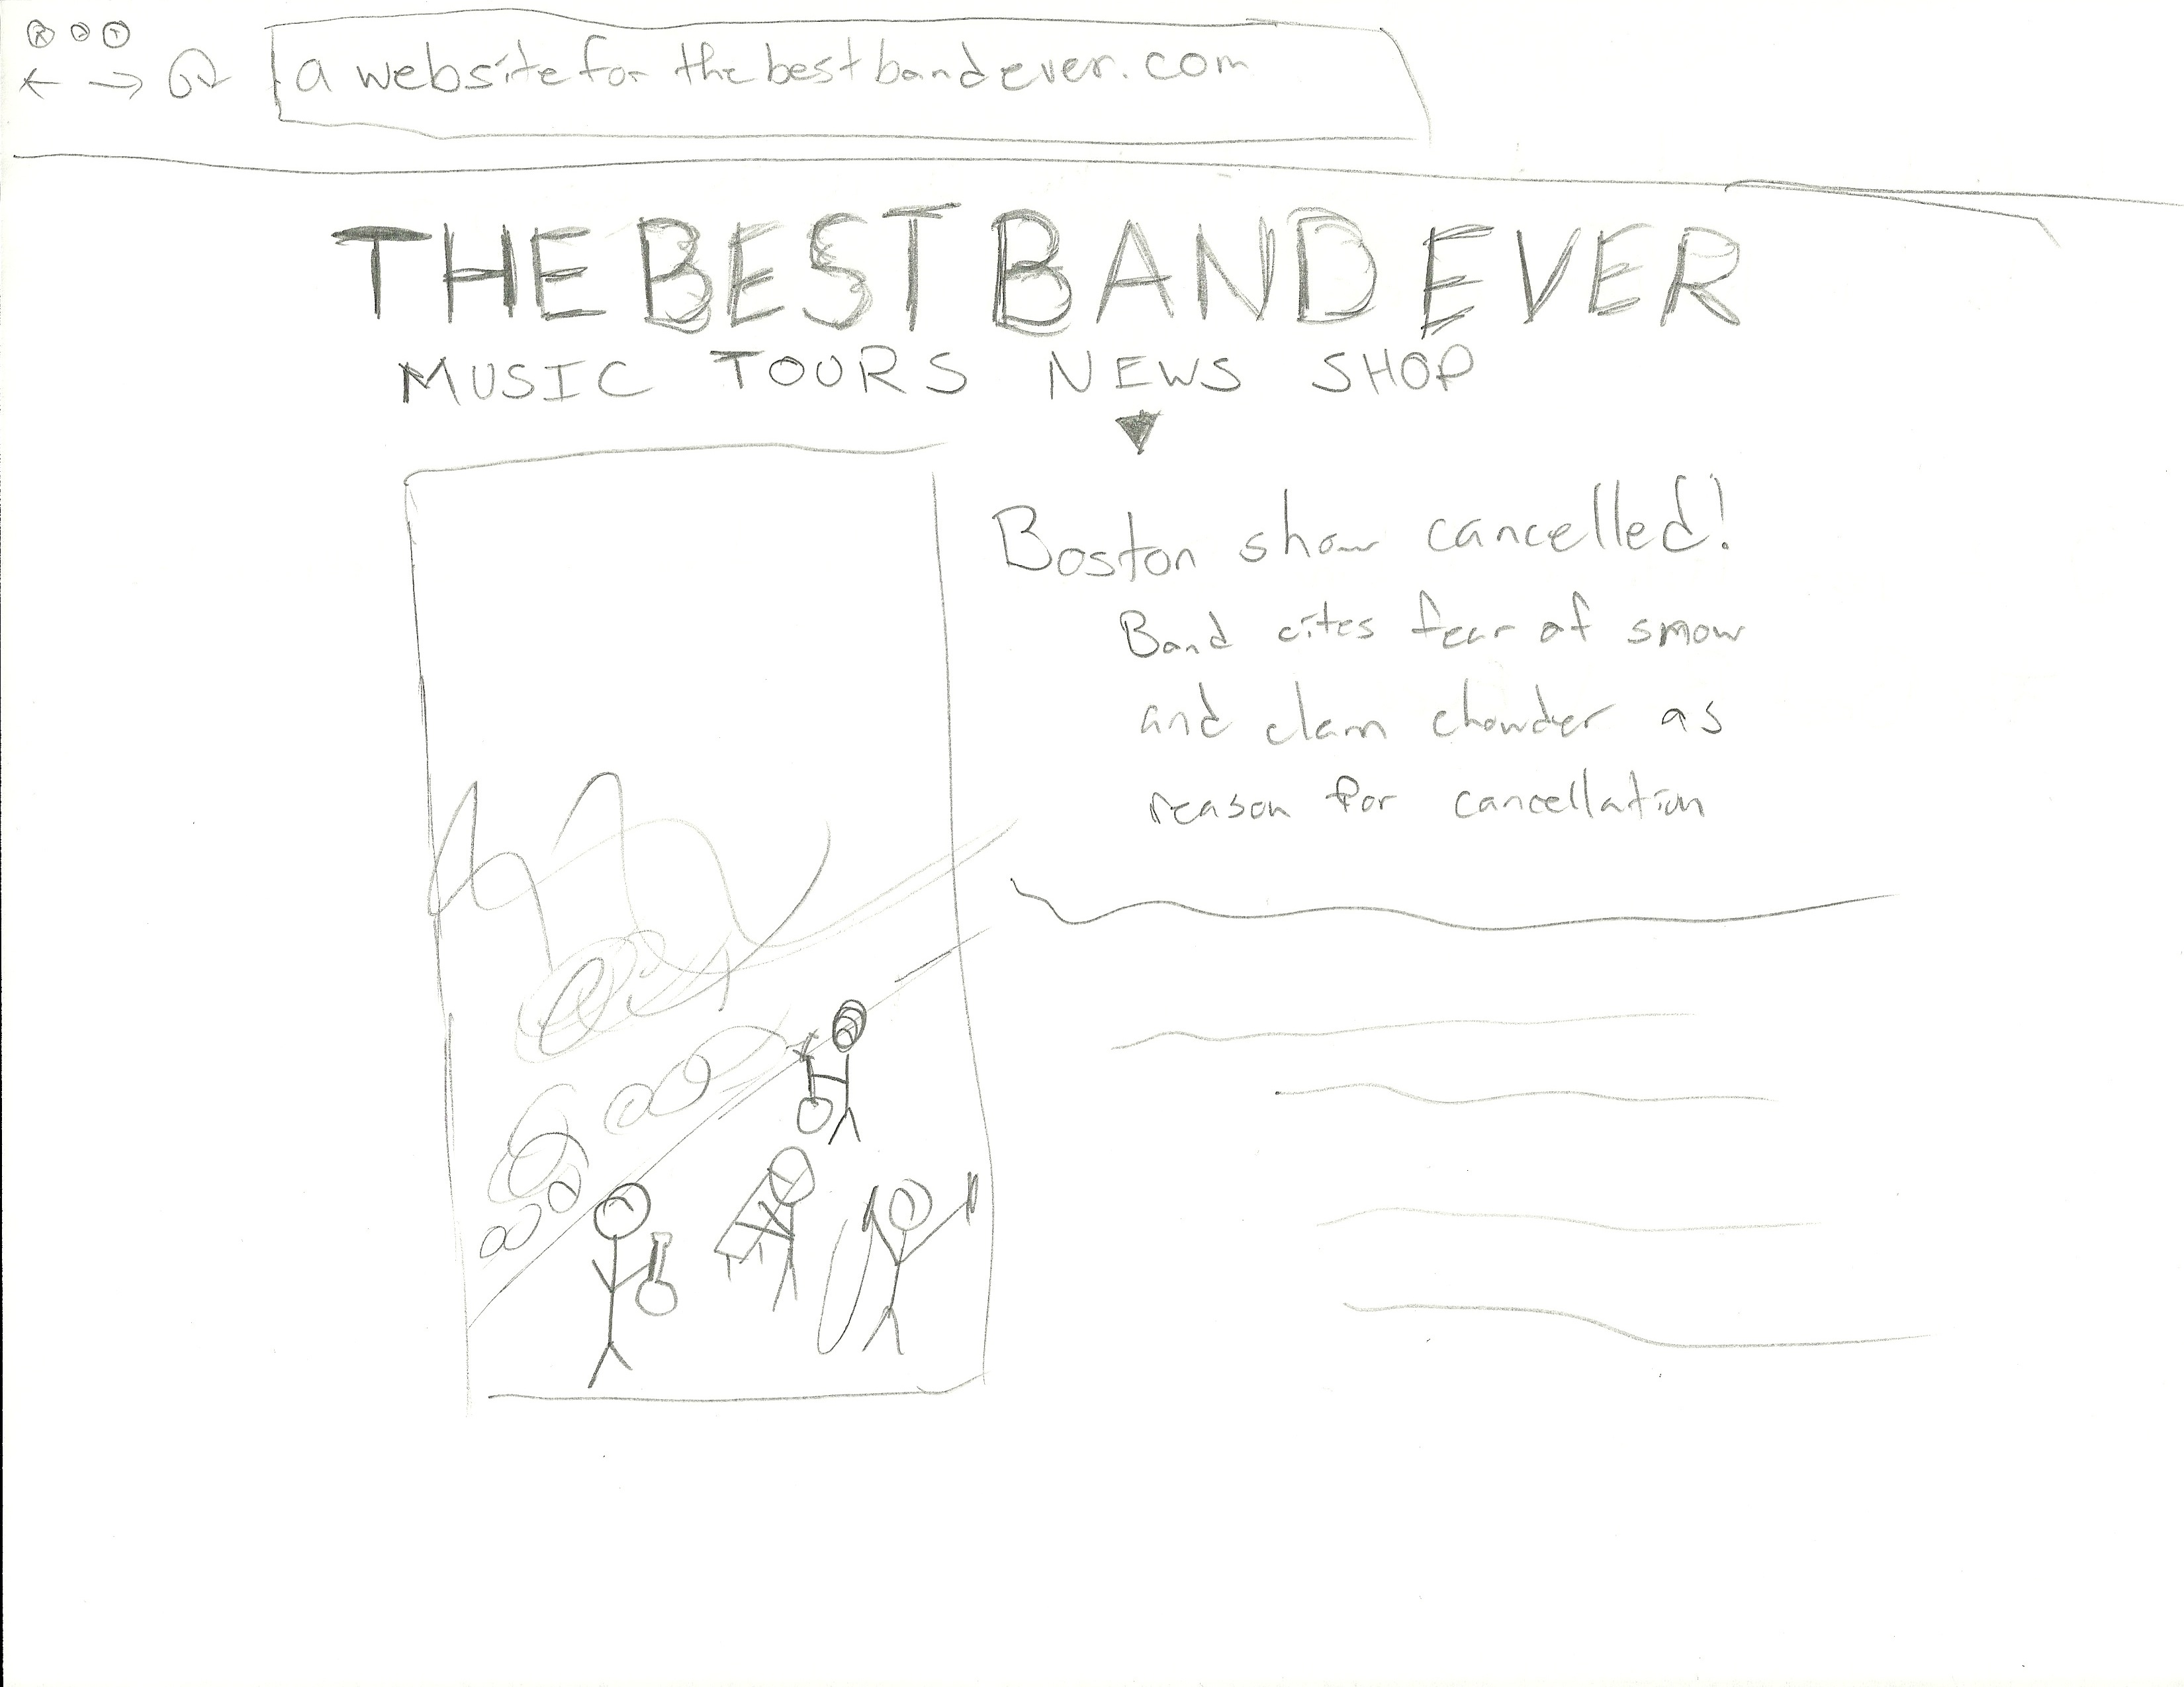 a websitefor thebestbandever.com
THE BEST BAND EVER
MUSIC TOURS NEWS SHOP
Boston show cancelled!
Band cites fear of snow
and clam chowder as
reason for cancellation